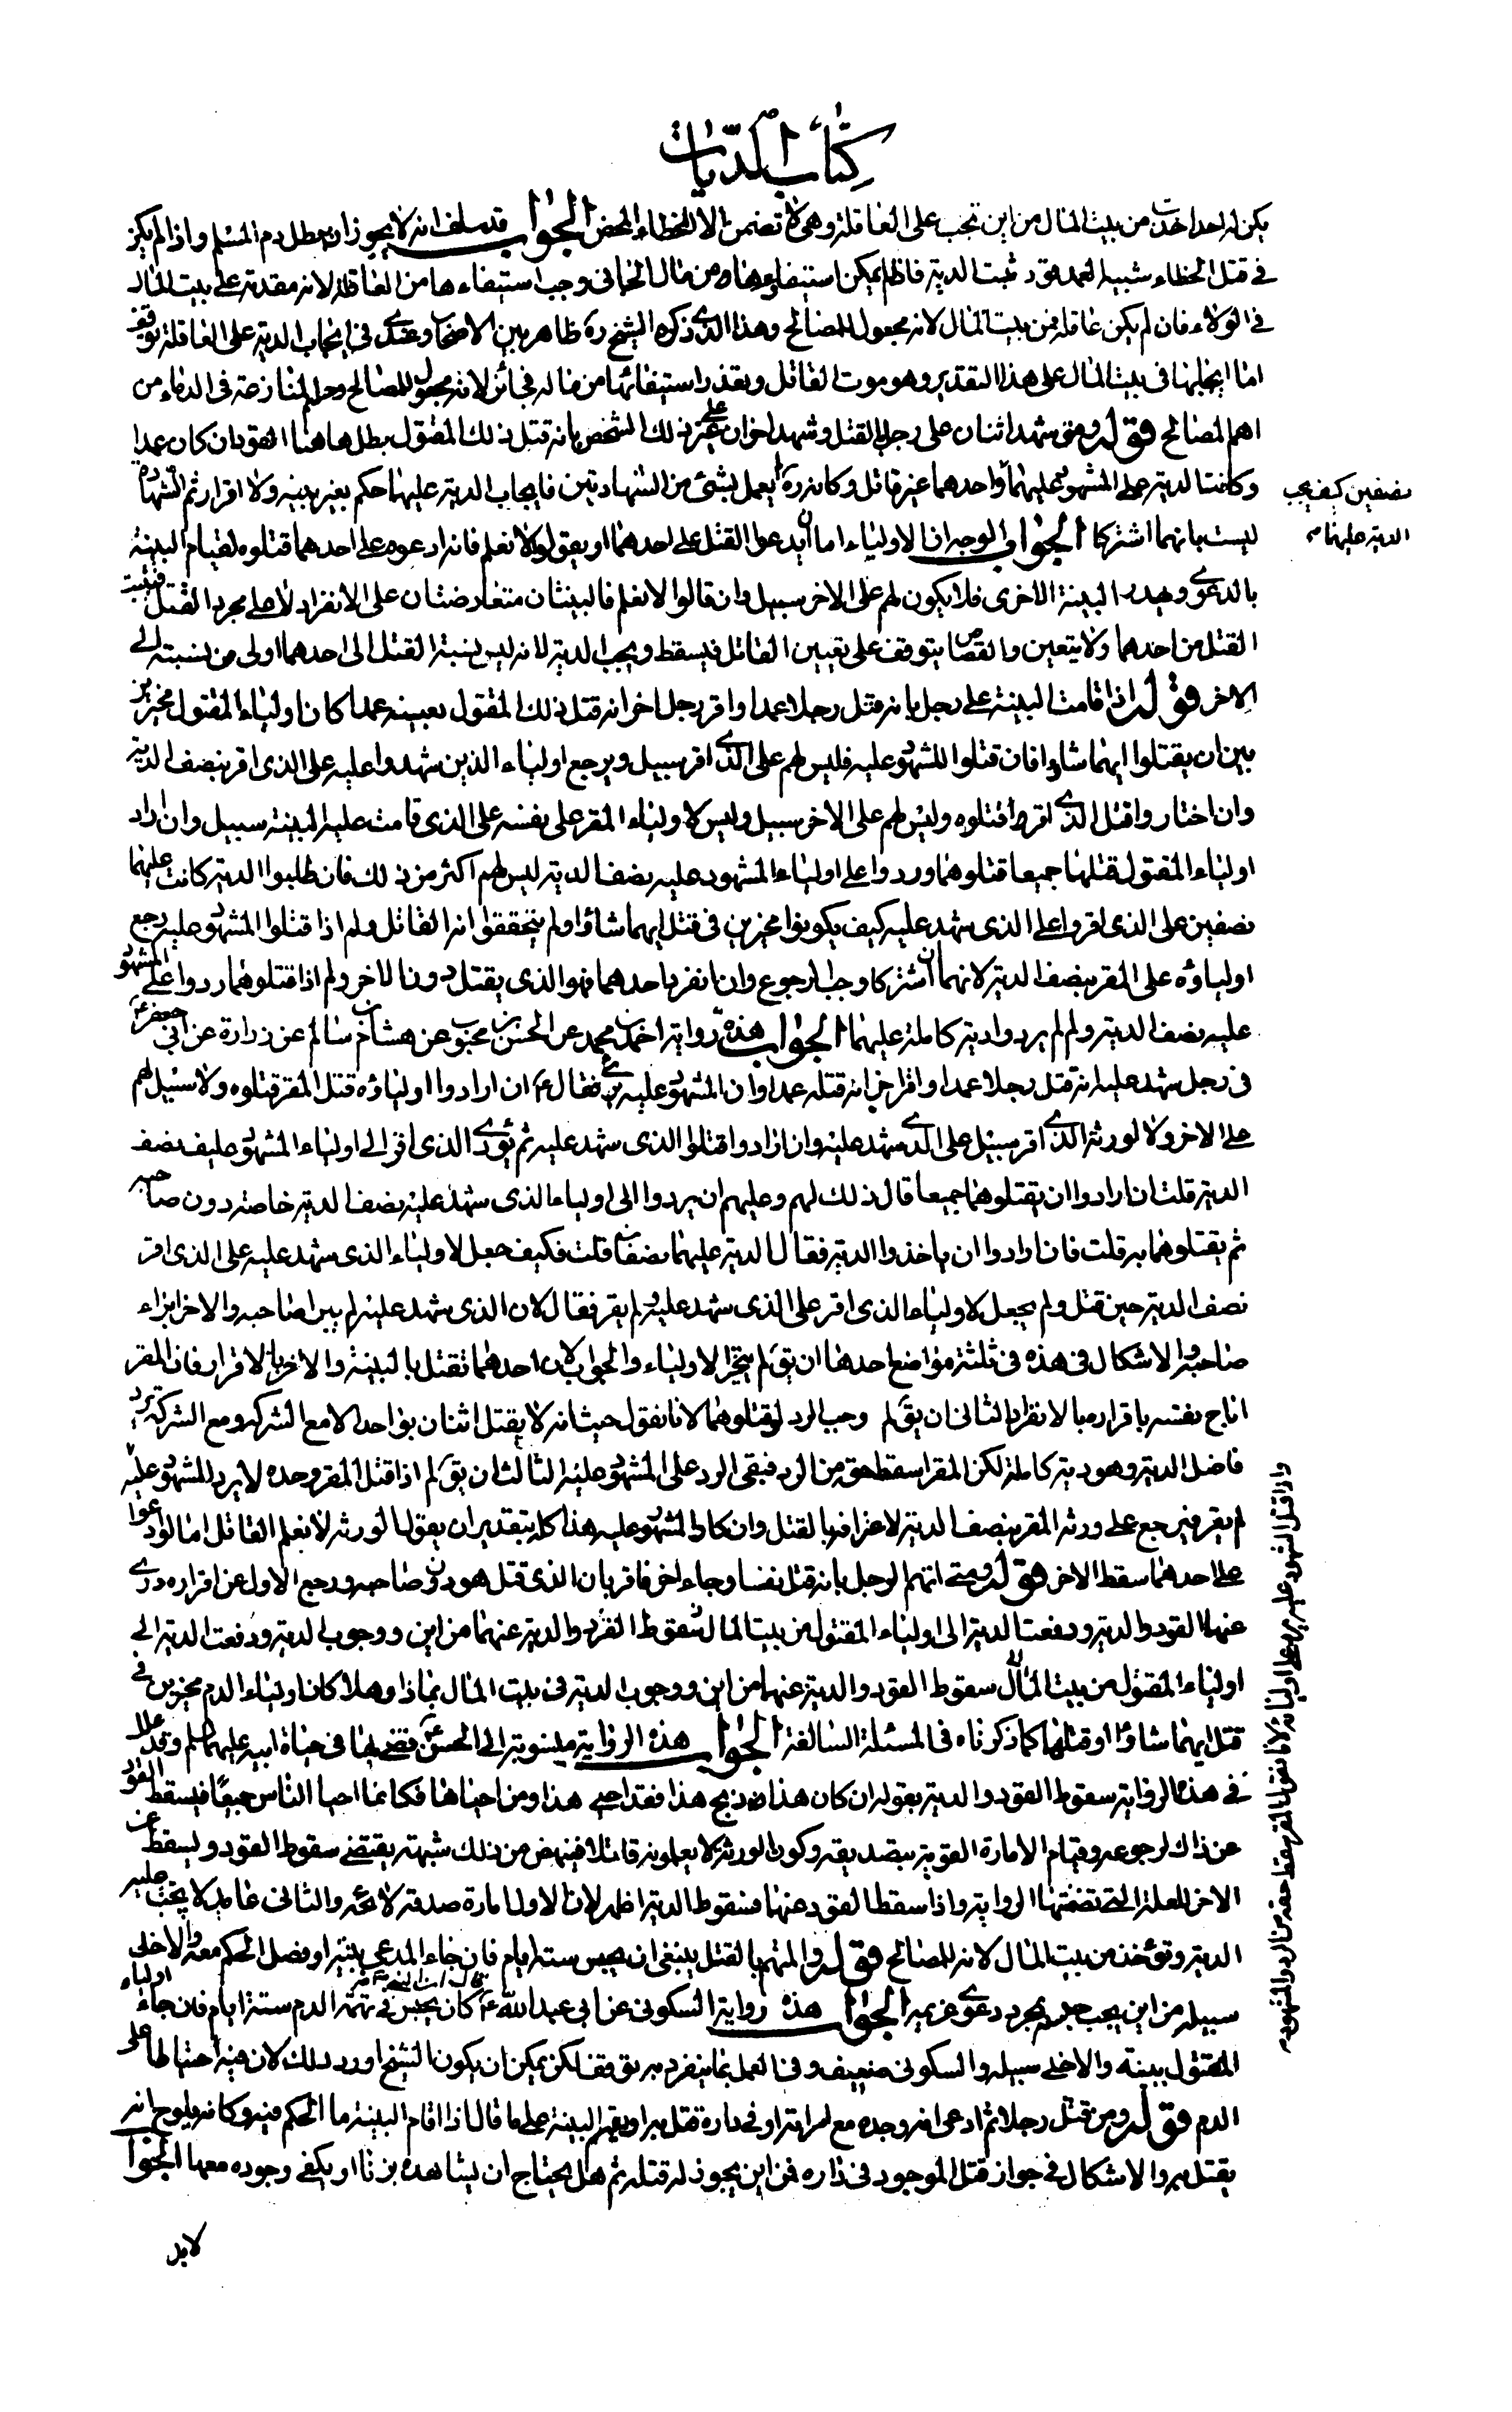 كتاب الديات
يكن له احد اخذت من بيت المال من اين تجب على العاقلة وهى لا تضمن الا الخطاء المحض الجواب قد سلف انه لا يجوز ان يطل دم المسلم واذا لم يكن
فى قتل الخطاء شبيه العمد قود ثبت الدية فاذا لم يكن استيفاؤها من مال الجانى وجب استيفاءها من العاقلة لانه مقدمة على بيت المال
فى الولاء فان لم يكن عاقلة فمن بيت المال لانه مجعول للمصالح وهذا الذى ذكره الشيخ ره ظاهر بين الاصحاب وعندى فى ايجاب الدية على العاقلة توقف
اما ايجابها فى بيت المال على هذا التقدير وهو موت القاتل وتعذر استيفائها من ماله فجائز لانه مجعول للمصالح وحل المنازعة فى الدماء من
اهم المصالح قوله ومتى شهد اثنان على رجل بالقتل وشهد اخران على غير ذلك الشخص بانه قتل ذلك المقتول بطل هاهنا القود ان كان عمدا
وكانت الدية على المشهود عليهما واحدهما غير قاتل وكانه ره لم يعمل بشئ من الشهادتين فايجاب الدية عليهما حكم بغير بينه ولا اقرار ثم الشهادة
نصفين كيف يجب
الدية عليهما
ليست بانهما اشتركا الجواب الوجه ان الاولياء اما ان يدعوا القتل على احدهما او يقولوا لا نعلم فان ادعوه على احدهما قتلوه لقيام البينة
بالدعوى ويهدر البينة الاخرى فلا يكون لهم على الاخر سبيل وان قالوا لا نعلم فالبينتان متعارضتان على الانفراد لا على مجرد القتل فيثبت
القتل من احدهما ولا يتعين والقصاص يتوقف على تعيين القاتل فيسقط ويجب الدية لانه ليس نسبة القتل الى احدهما اولى من نسبته الى
الاخر قوله اذا قامت البينة على رجل بانه قتل رجلا عمدا واقر رجل اخر انه قتل ذلك المقتول بعينه عمدا كان اولياء المقتول مخيرين
بين ان يقتلوا ايهما شاؤا فان قتلوا المشهود عليه فليس لهم على الذى اقر سبيل ويرجع اولياء الذين شهدوا عليه على الذى اقر بنصف الدية
وان اختاروا قتل الذى اقر قتلوه وليس لهم على الاخر سبيل وليس لاولياء المقر على نفسه على الذى قامت عليه البينة سبيل وان اراد
اولياء المقتول قتلهما جميعا قتلوهما وردوا على اولياء المشهود عليه نصف الدية ليس لهم اكثر من ذلك فان طلبوا الدية كانت عليهما
نصفين على الذى اقر وعلى الذى شهد عليه كيف يكونوا مخيرين فى قتل ايهما شاؤا ولم يتحققوا انه القاتل ولم اذا قتلوا المشهود عليه رجع
اولياؤه على المقر بنصف الدية لانهما ان اشتركا وجب الرجوع وان انفرد احدهما فهو الذى يقتل دون الاخر ولم اذا قتلوهما ردوا على المشهود
عليه نصف الدية ولم لم يردوا دية كاملة عليهما الجواب هذه رواية احمد بن محمد عن الحسن بن محبوب عن هشام بن سالم عن زرارة عن ابى جعفر ع
فى رجل شهد عليه انه قتل رجلا عمدا واقر اخر انه قتله عمدا وان المشهود عليه برئ فقال ع ان ارادوا اولياؤه قتل المقر قتلوه ولا سبيل لهم
على الاخر ولا لورثة الذى اقر سبيل على الذى شهد عليه وان ارادوا قتلوا الذى شهد عليه ثم يؤدى الذى اقر الى اولياء المشهود عليه نصف
الدية قلت ان ارادوا ان يقتلوهما جميعا قال ذلك لهم وعليهم ان يردوا الى اولياء الذى شهد عليه نصف الدية خاصة دون صاحبه
ثم يقتلوهما به قلت فان ارادوا ان ياخذوا الدية فقال الدية عليهما نصفان قلت فكيف جعل لاولياء الذى شهد عليه على الذى اقر
نصف الدية حين قتل ولم يجعل لاولياء الذى اقر على الذى شهد عليه ولم يقر فقال لان الذى شهد عليه لم يبرء صاحبه والاخر ابراء
صاحبه والاشكال فى هذه فى ثلثة مواضع احدها ان يق لم يتخير الاولياء والجواب لان احدهما نقتل بالبينة والاخر بالاقرار فان المقر
اباح نفسه باقراره بالانفراد الثانى ان يق لم وجب الرد لو قتلوهما لانا نقول حيث انه لا يقتل اثنان بواحد الا مع الشركه ومع الشركة يرد
فاضل الدية وهو دية كاملة لكن المقر اسقط حقه من الرد فبقى الرد على المشهود عليه الثالث ان يق لم اذا قتل المقر وحده لا يرد المشهود عليه
واذا قتل المشهود عليه يرد على اوليائه لانا نقول المقر سقط حقه من الرد والمشهود
لم يقر فيرجع على ورثه المقر بنصف الدية لاعترافه بالقتل وانكار المشهود عليه هذا كله بتقدير ان يقول الورثه لا نعلم القاتل اما لو ادعوا
على احدهما سقط الاخر قوله ومتى اتهم الرجل بانه قتل نفسا وجاء اخر فاقر بان الذى قتل هو دون صاحبه ورجع الاول عن اقراره درئ
عنهما القود والدية ودفعت الدية الى اولياء المقتول من بيت المال سقوط القود والدية عنهما من اين ووجوب الدية ودفعت الدية الى
اولياء المقتول من بيت المال سقوط القود والدية عنهما من اين ووجوب الدية فى بيت المال بماذا وهلا كان اولياء الدم مخيرين فى
قتل ايهما شاؤا او قتلهما كما ذكرناه فى المسئلة السالفة الجواب هذه الرواية منسوبة الى الحسن ع قضى بها فى حياة ابيه عليهما السلم وقد علل
فى هذه الرواية سقوط القود والدية بقوله ان كان هذا ذبح هذا فقد احيى هذا ومن احياها فكانما احيا الناس جميعا فيسقط القود
عن ذاك لرجوعه وقيام الامارة القوية بتصديقه وكون الورثة لا يعلمونه قاتلا فينهض من ذلك شبهة يقتضى سقوط القود ويسقط عن
الاخر للعلة التى تضمنتها الرواية واذا سقط القود عنهما فسقوط الدية اظهر لان الاول امارة صدقه لائحه والثانى لا يجب عليه
الدية وتؤخذ من بيت المال لانه للمصالح قوله والمتهم بالقتل ينبغى ان يحبس ستة ايام فان جاء المدعى ببينة او فصل الحكم معه والا خلى
سبيله من اين يجب حبسه بمجرد دعوى غريمه الجواب هذه رواية السكونى عن ابى عبد الله ع قال ان النبى ص كان يحبس فى تهمة الدم ستة ايام فان جاء اولياء
المقتول ببينة والا خلى سبيله والسكونى ضعيف وفى العمل بما ينفرد به توقف لكن يمكن ان يكون الشيخ اورد ذلك لان فيه احتياطا على
الدم قوله ومن قتل رجلا ثم ادعى انه وجده مع امراته او فى داره قتل به او يقيم البينة على ما قال اذا اقام البينة ما الحكم فيه وكانه يلوح انه
يقتل به والاشكال فى جواز قتل الموجود فى داره فمن اين يجوز له قتله ثم هل يحتاج ان يشاهده بزنا او يكفى وجوده معها الجواب
لابد